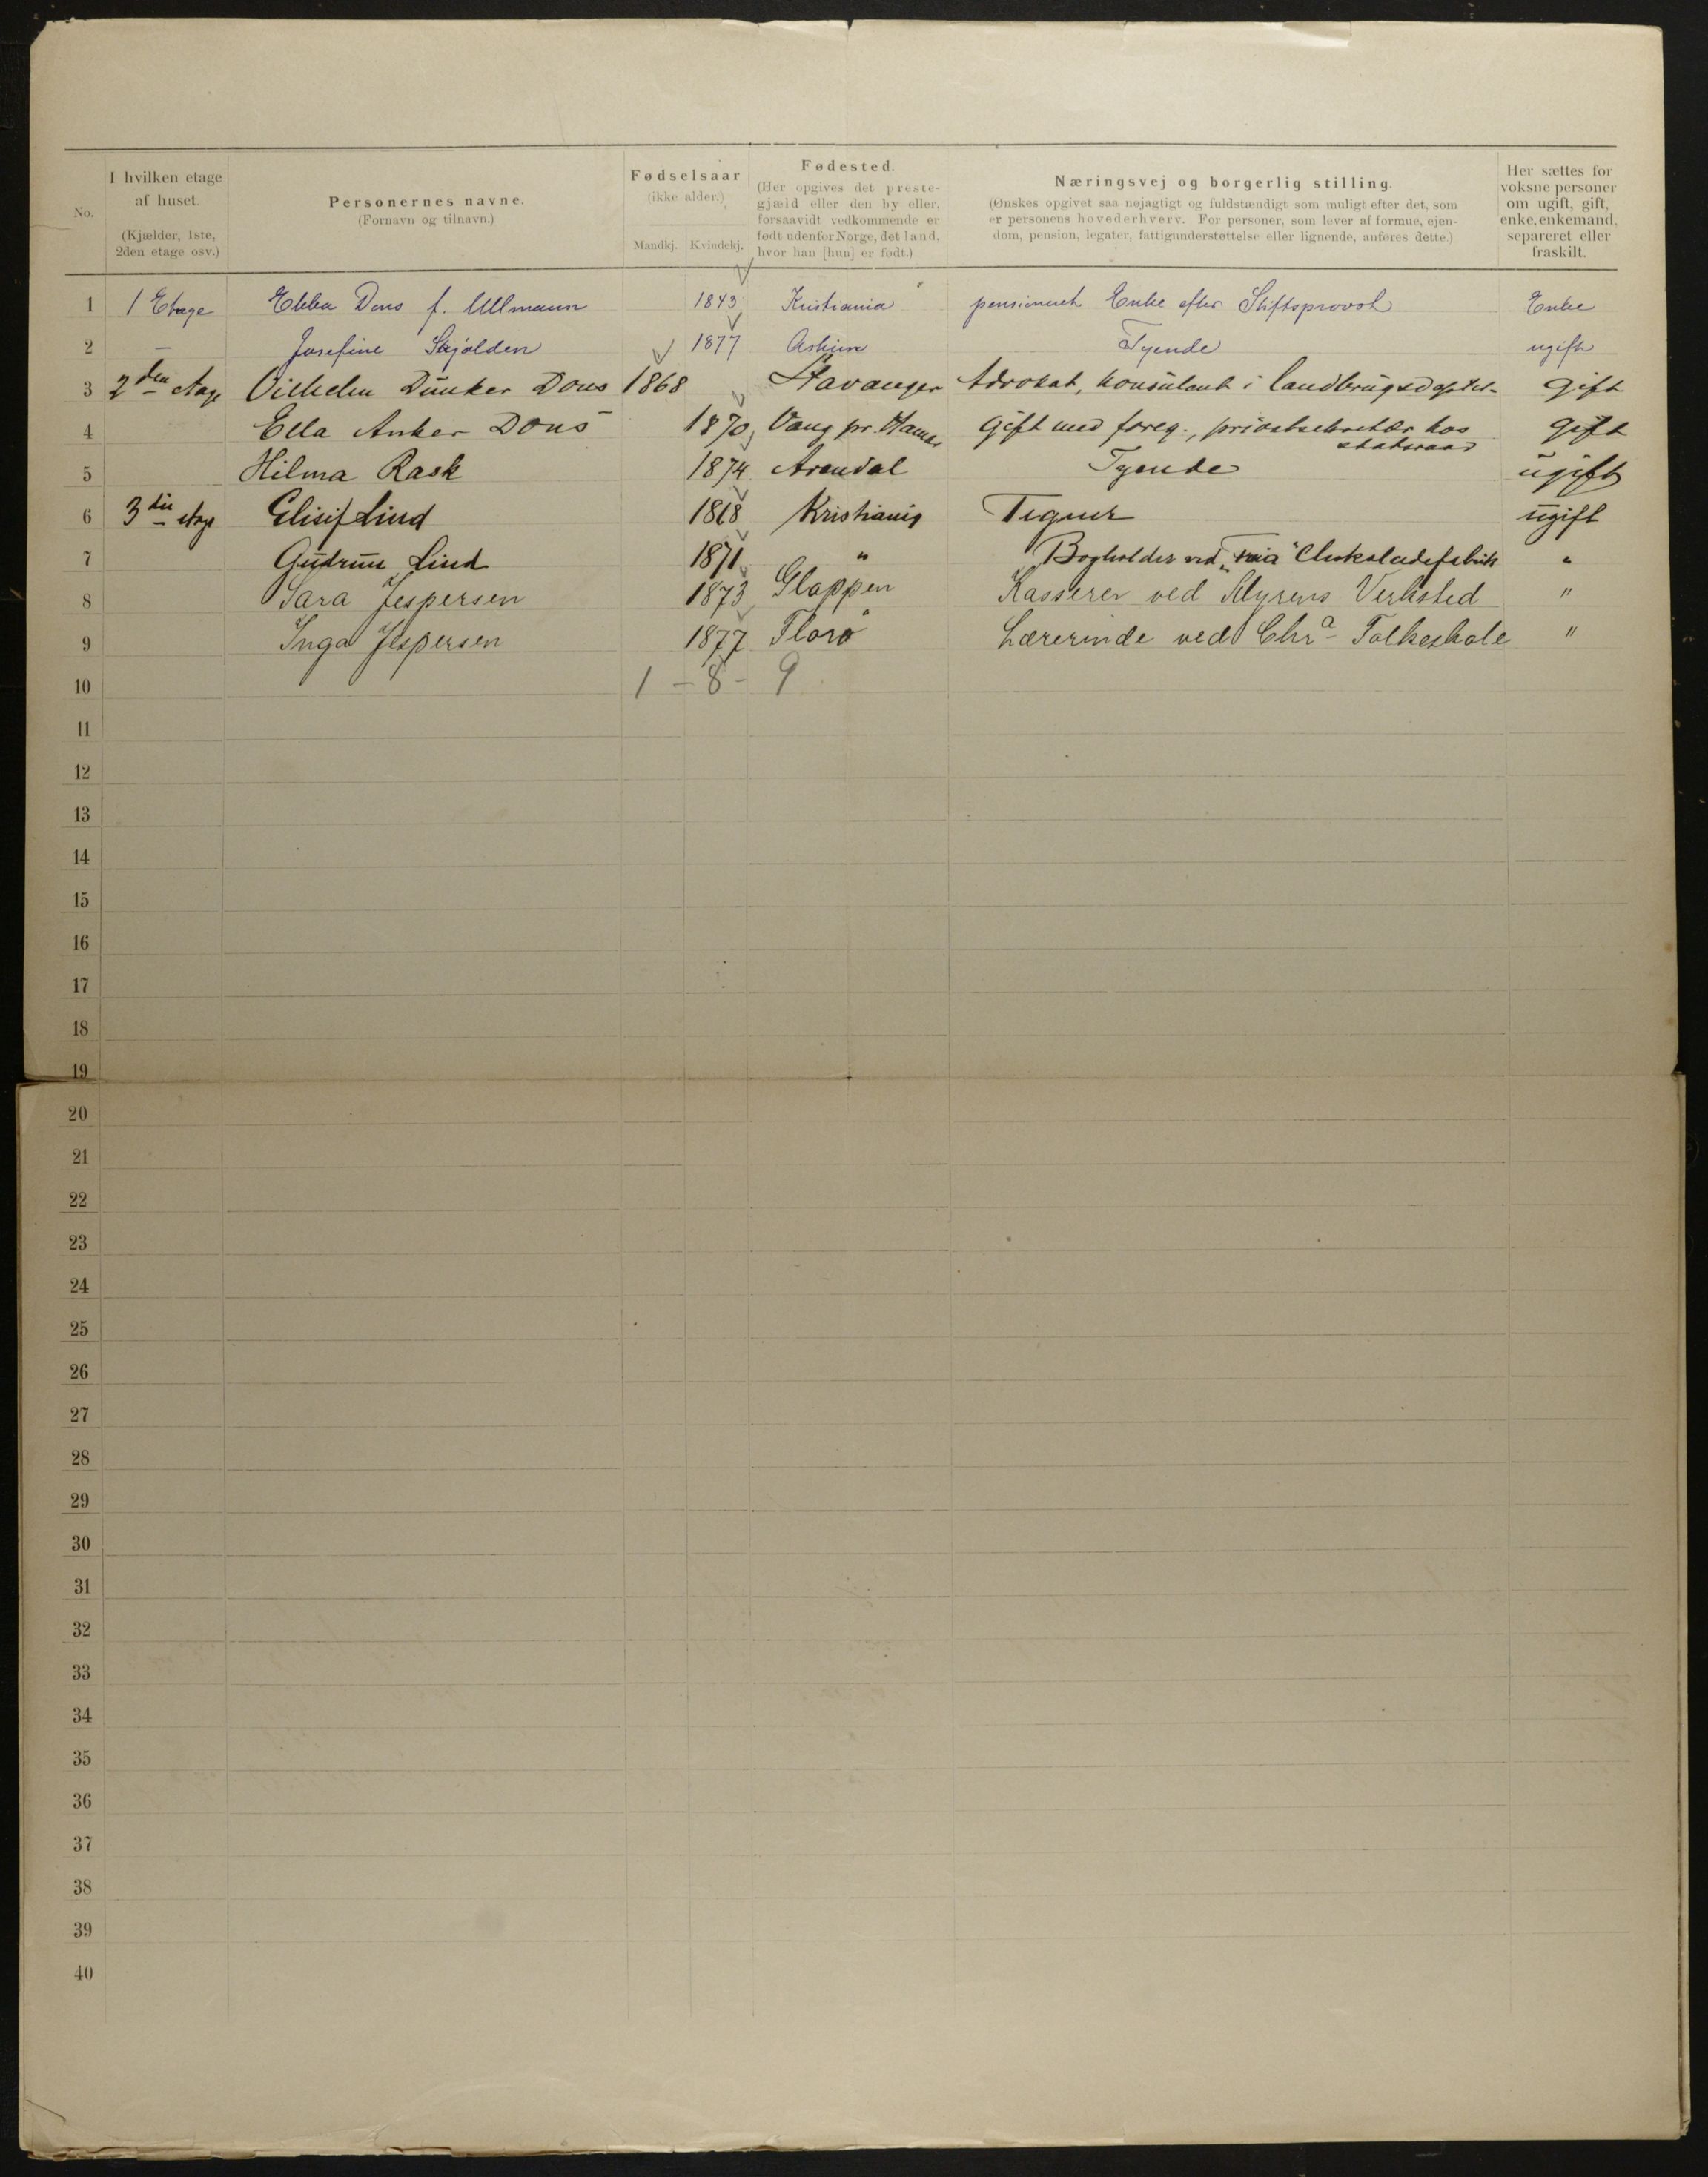 No.
I hvilken etage af huset. (Kjælder, 1ste, 2den etage osv.)
Personernes navne. (Fornavn og tilnavn.)
Fødselsaar (ikke alder.) Mandkj. Kvindekj.
Fødested. (Her opgives det prestegjæld eller den by eller, forsaavidt vedkommende er født udenfor Norge, det land, hvor han [hun] er født.)
Næringsvej og borgerlig stilling. (Ønskes opgivet saa nøjagtigt og fuldstændigt som muligt efter det, som er personens hovederhverv. For personer, som lever af formue, ejendom, pension, legater, fattigunderstøttelse eller lignende, anføres dette.)
Her sættes for voksne personer om ugift, gift, enke, enkemand, separeret eller fraskilt.
1 1 Etage Ebba Dons f. Ullmann 1843 Kristiania pensioneret Enke efter Stiftsprovst Enke
2 — Josefine Skjolden 1877 Askim Tyende ugift
3 2den etage Vilhelm Dunker Dons 1868 Stavanger Advokat, konsulent i landbrugsdeptet- gift
4 Ella Anker Dons 1870 Vang pr. Hamar Gift med foreg., privatsekretær hos statsraad gift
5 Hilma Rask 1874 Arendal Tyende ugift
6 3die etage Elisif Lind 1868 Kristiania ugift
7 Gudrun Lind 1871 " Bogholder ved "Freia" Chokoladefabrik "
8 Sara Jespersen 1873 Glappen Kasserer ved Myrens Verksted "
9 Inga Jespersen 1877 Florø Lærerinde ved Chra- Folkeskole "
10 1 - 8 - 9
11
12
13
14
15
16
17
18
19
20
21
22
23
24
25
26
27
28
29
30
31
32
33
34
35
36
37
38
39
40